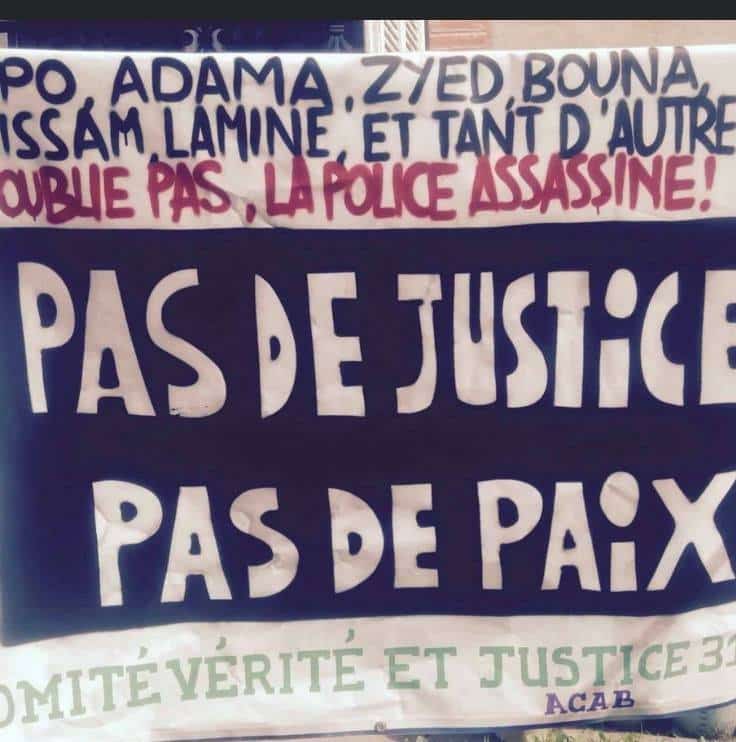 PO, ADAMA, ZYED, BOUNA,
ISSAM, LAMINE, ET TANT D'AUTRE
OUBLIE PAS, LA POLICE ASSASSINE!
PAS DE JUSTICE
PAS DE PAIX
OMITÉ VÉRITÉ ET JUSTICE 31
ACAB